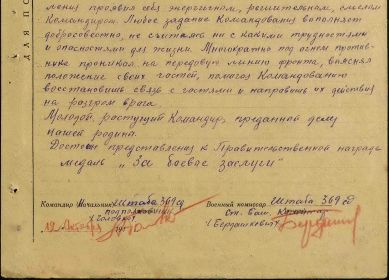 ления проявил себя энергичным, решительным, смелым
Командиром. Любое задание Командования выполняет
добросовестно, не считаясь ни с какими трудностями
и опасностями для жизни. Многократно под огнем против-
ника проникал на передовую линию фронта, выяснял
положение своих частей, помогая Командованию
восстановить связь с частями и направить их действия
на разгром врага.
Молодой, растущий Командир, преданной делу
нашей родины.
Достоин представления к Правительственной награде
медаль „За боевые заслуги"
Командир Начальник Штаба 369 сд
подполковник
Военный комиссар Штаба 369 сд
Ст. Бат. Комиссар
/Бердашкевич/
ДЛЯ ПО